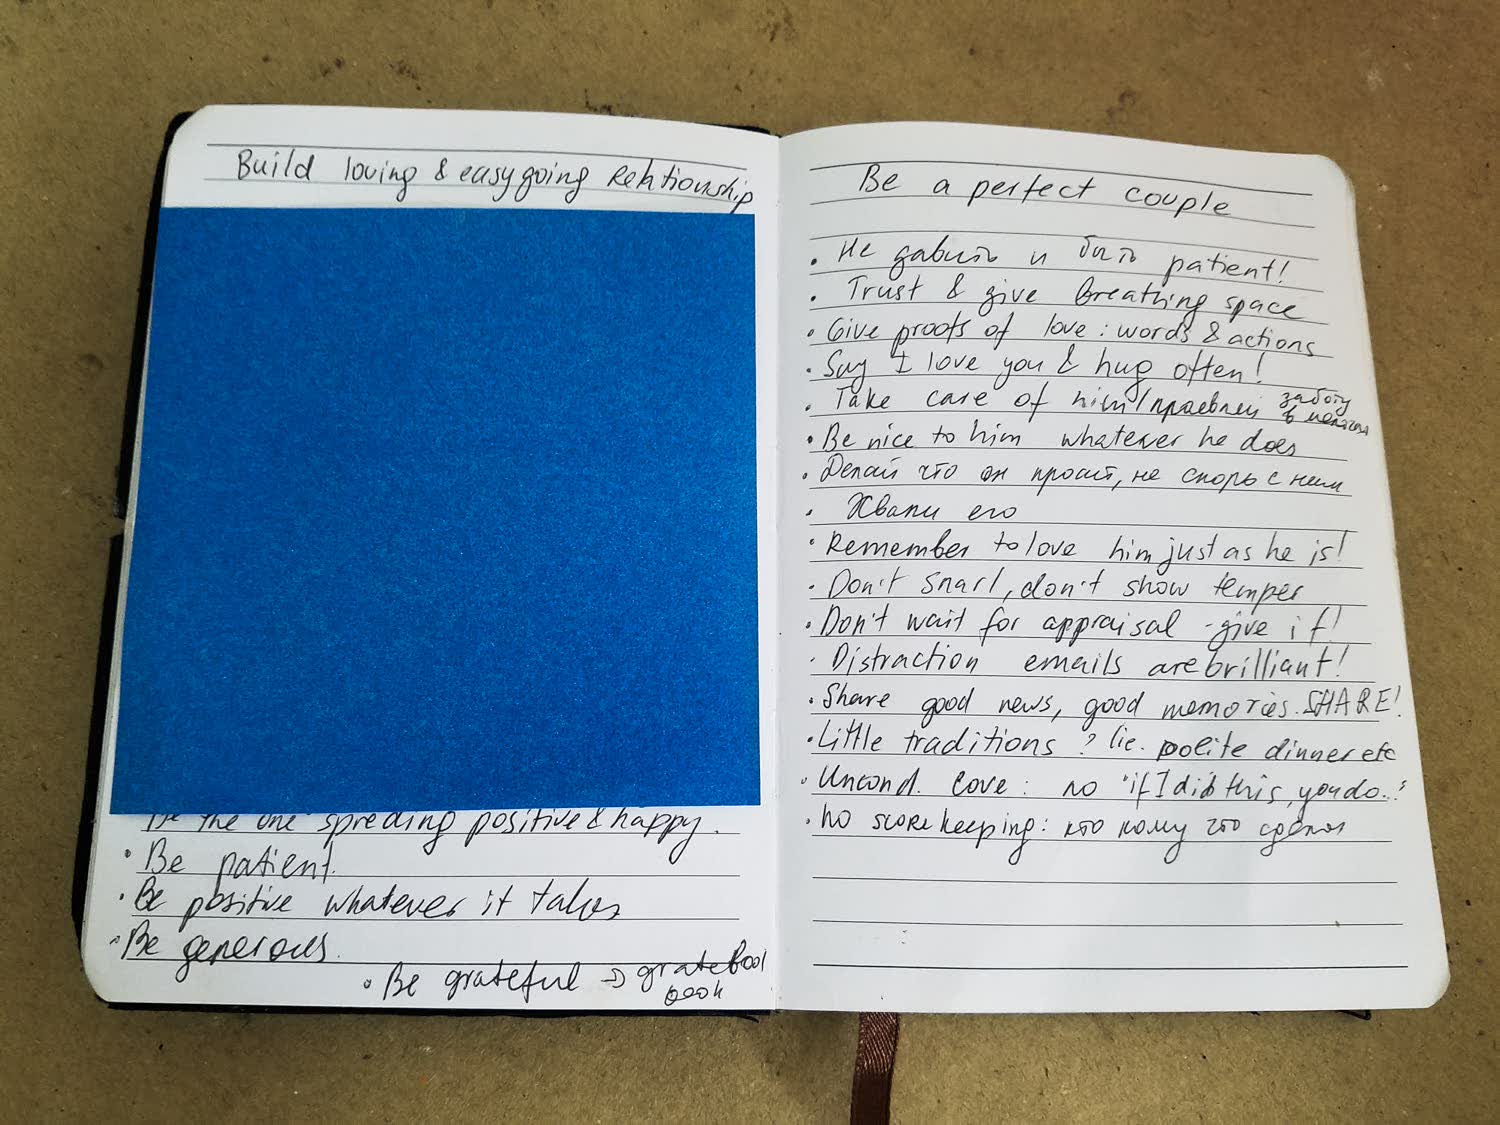 Build loving & easygoing relationship
the one spreding positive & happy.
• Be patient.
• Be positive whatever it takes
• Be generous.
• Be grateful →
Be a perfect couple
• Не давить и быть patient!
• Trust & give breathing space
• Give proofs of love: words & actions
• Say I love you & hug often!
• Take care of him / проявляй заботу
в мелочах
• Be nice to him whatever he does
• Делай что он просит, не спорь с ним
• Хвали его
• Remember to love him just as he is!
• Don't snarl, don't show temper
• Don't wait for appraisal - give it!
• Distraction emails are brilliant!
• Share good news, good memories. SHARE!
• Little traditions ? lie. polite dinner etc
• Uncond. love: no "if I did this, you do.."
• no score keeping: кто кому что сделал